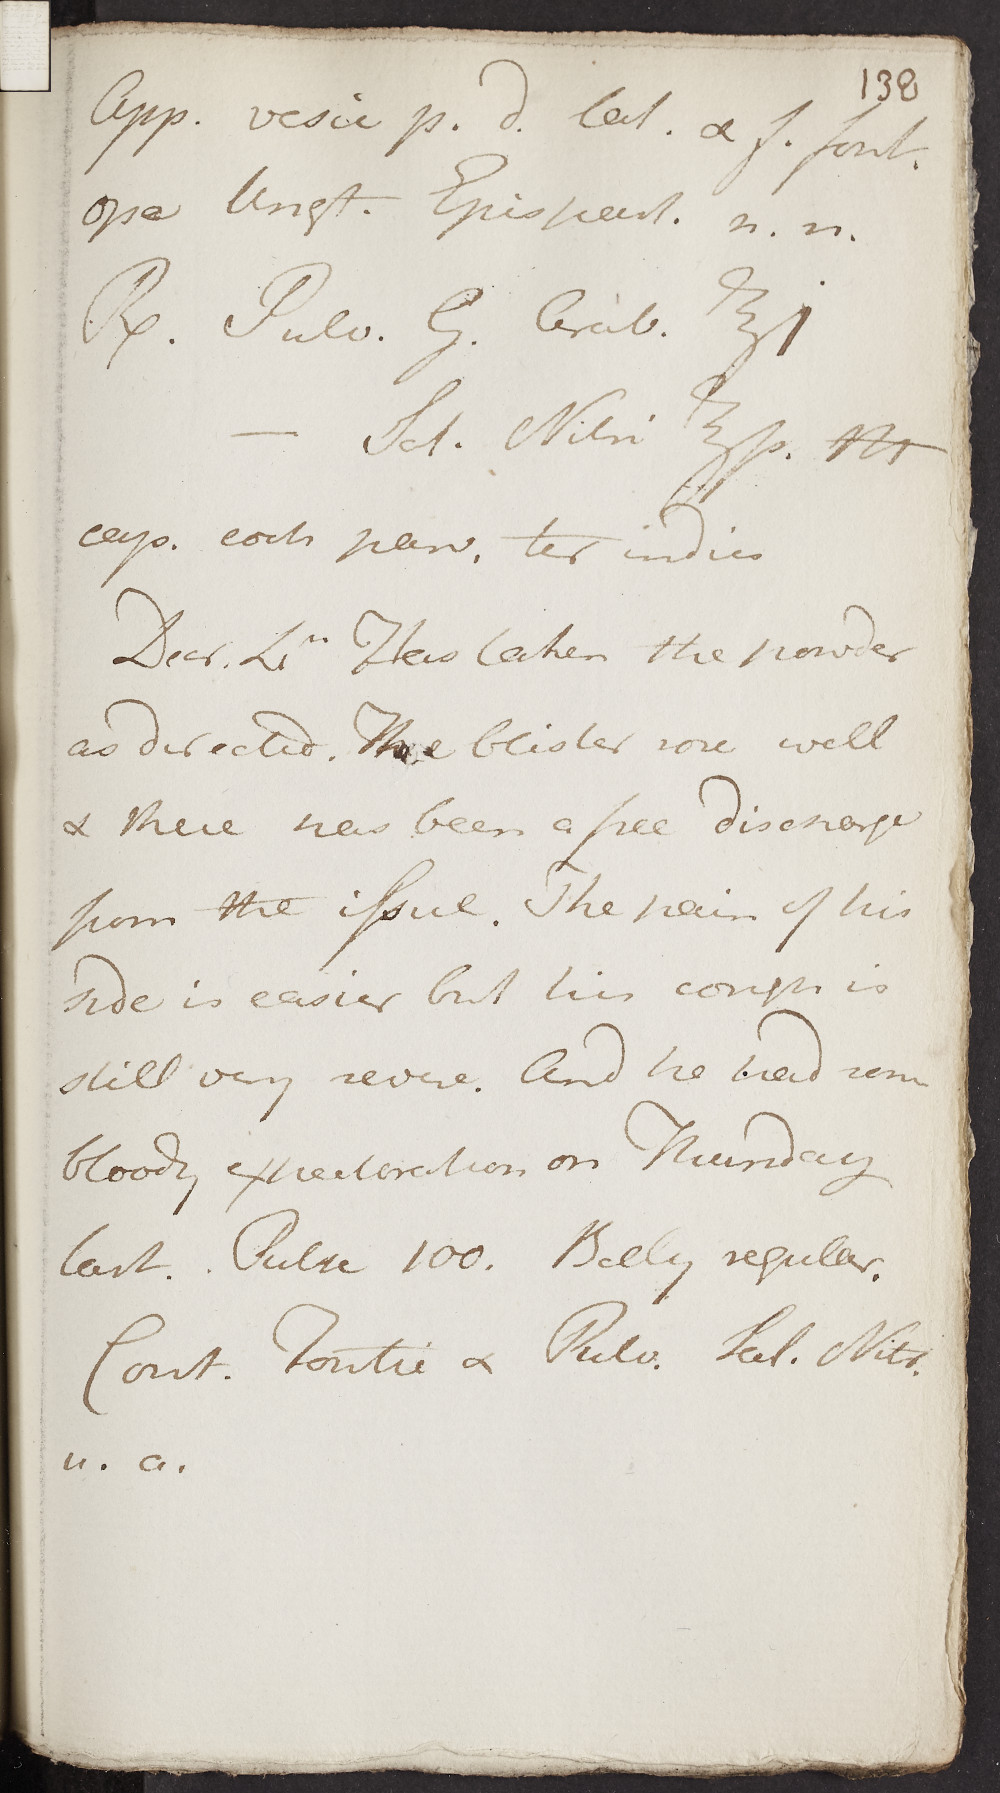 138
App. vesic p. d. lat. & f. font.
ope Ungt. Epispast. n. n.
Rx. Pulv. G. Arab. ℥j
— Sal. Nitri ℥ſs. M
cap. coch parv. ter indies
Dear. Sir Has taken the powder
as directed. The blister rose well
& there has been a free discharge
from the issue. The pain of his
side is easier but his cough is
still very severe. And he had some
bloody expectoration on Thursday
last. Pulse 100. Belly regular.
Cont. Fontic & Pulv. Sal. Nitr.
u. a.